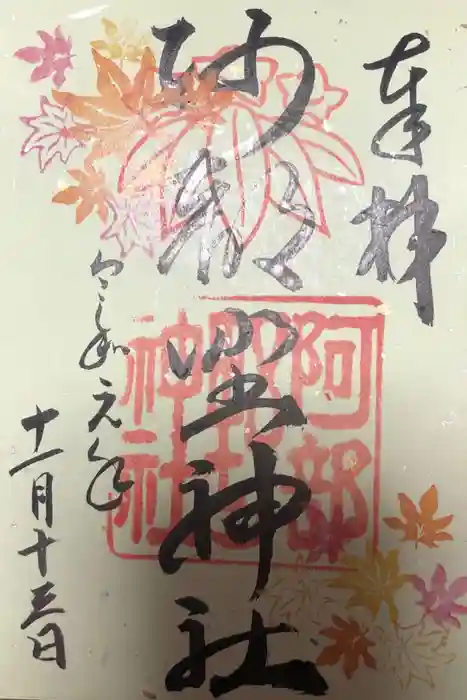 奉拝
阿部野神社
阿部野神社
令和元年
十一月十三日